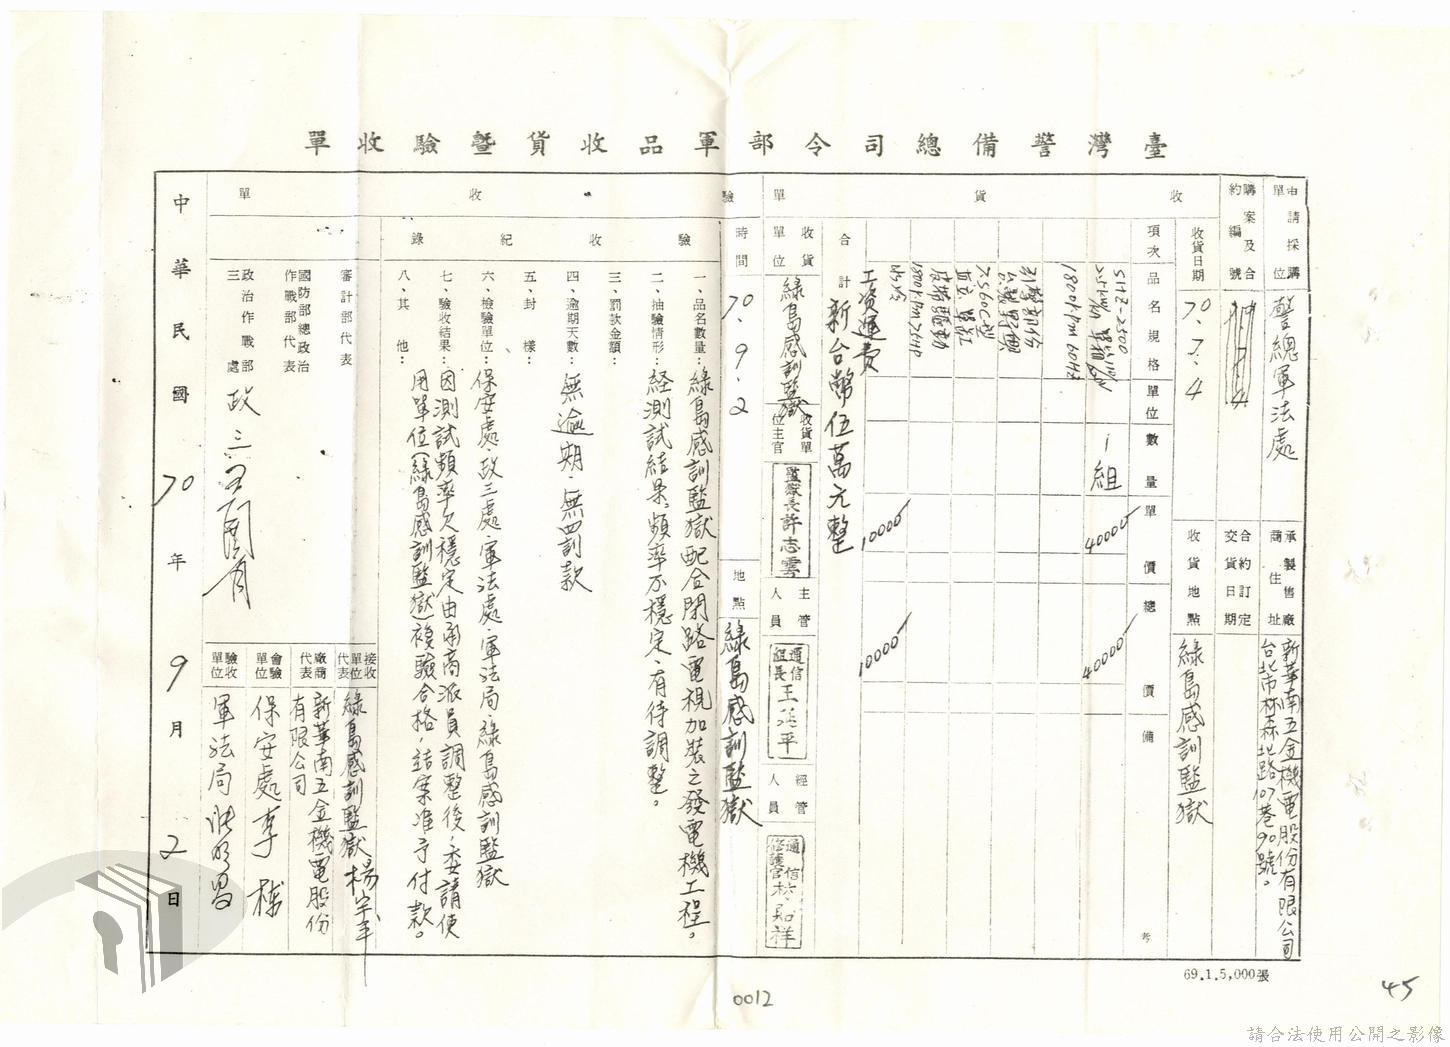 臺灣警備總司令部軍品收貨暨驗收單
申請採購單位
警總軍法處
承製售廠商住址
新華南五金機電股份有限公司
台北市林森北路107巷90號。
購案及合約編號
合約訂定交貨日期
收貨單
收貨日期
70.7.4
收貨地點
綠島感訓監獄
項次
品名規格
單位
數量
單價
總價
備考
1組
40000
40000
1800r.p.m 60HZ
工資運費
10000
10000
合計
新台幣伍萬元整
收貨單位
綠島感訓監獄
收貨單位主官
監獄長許志雲
主管人員
通信組長
經管人員
通信修護官
驗收單
時間
70.9.2
地點
綠島感訓監獄
驗收紀錄
一、品名數量：綠島感訓監獄配合閉路電視加裝之發電機工程。
二、抽驗情形：経測試結果、頻率不穩定、有待調整。
三、罰款金額：
四、逾期天數：無逾期．無罰款
五、封樣：
六、檢驗單位：保安處、政三處、軍法處、軍法局、綠島感訓監獄
七、驗收結果：因測試頻率欠穩定由承商派員調整後，委請使
八、其他：用單位(綠島感訓監獄)複驗合格，結案准予付款。
審計部代表
國防部總政治作戰部代表
政治作戰部三處
政三
接收單位代表
綠島感訓監獄
廠商代表
新華南五金機電股份有限公司
會驗單位
保安處
驗收單位
軍法局
中華民國70年9月2日
69.1.5,000張
0012
45
請合法使用公開之影像